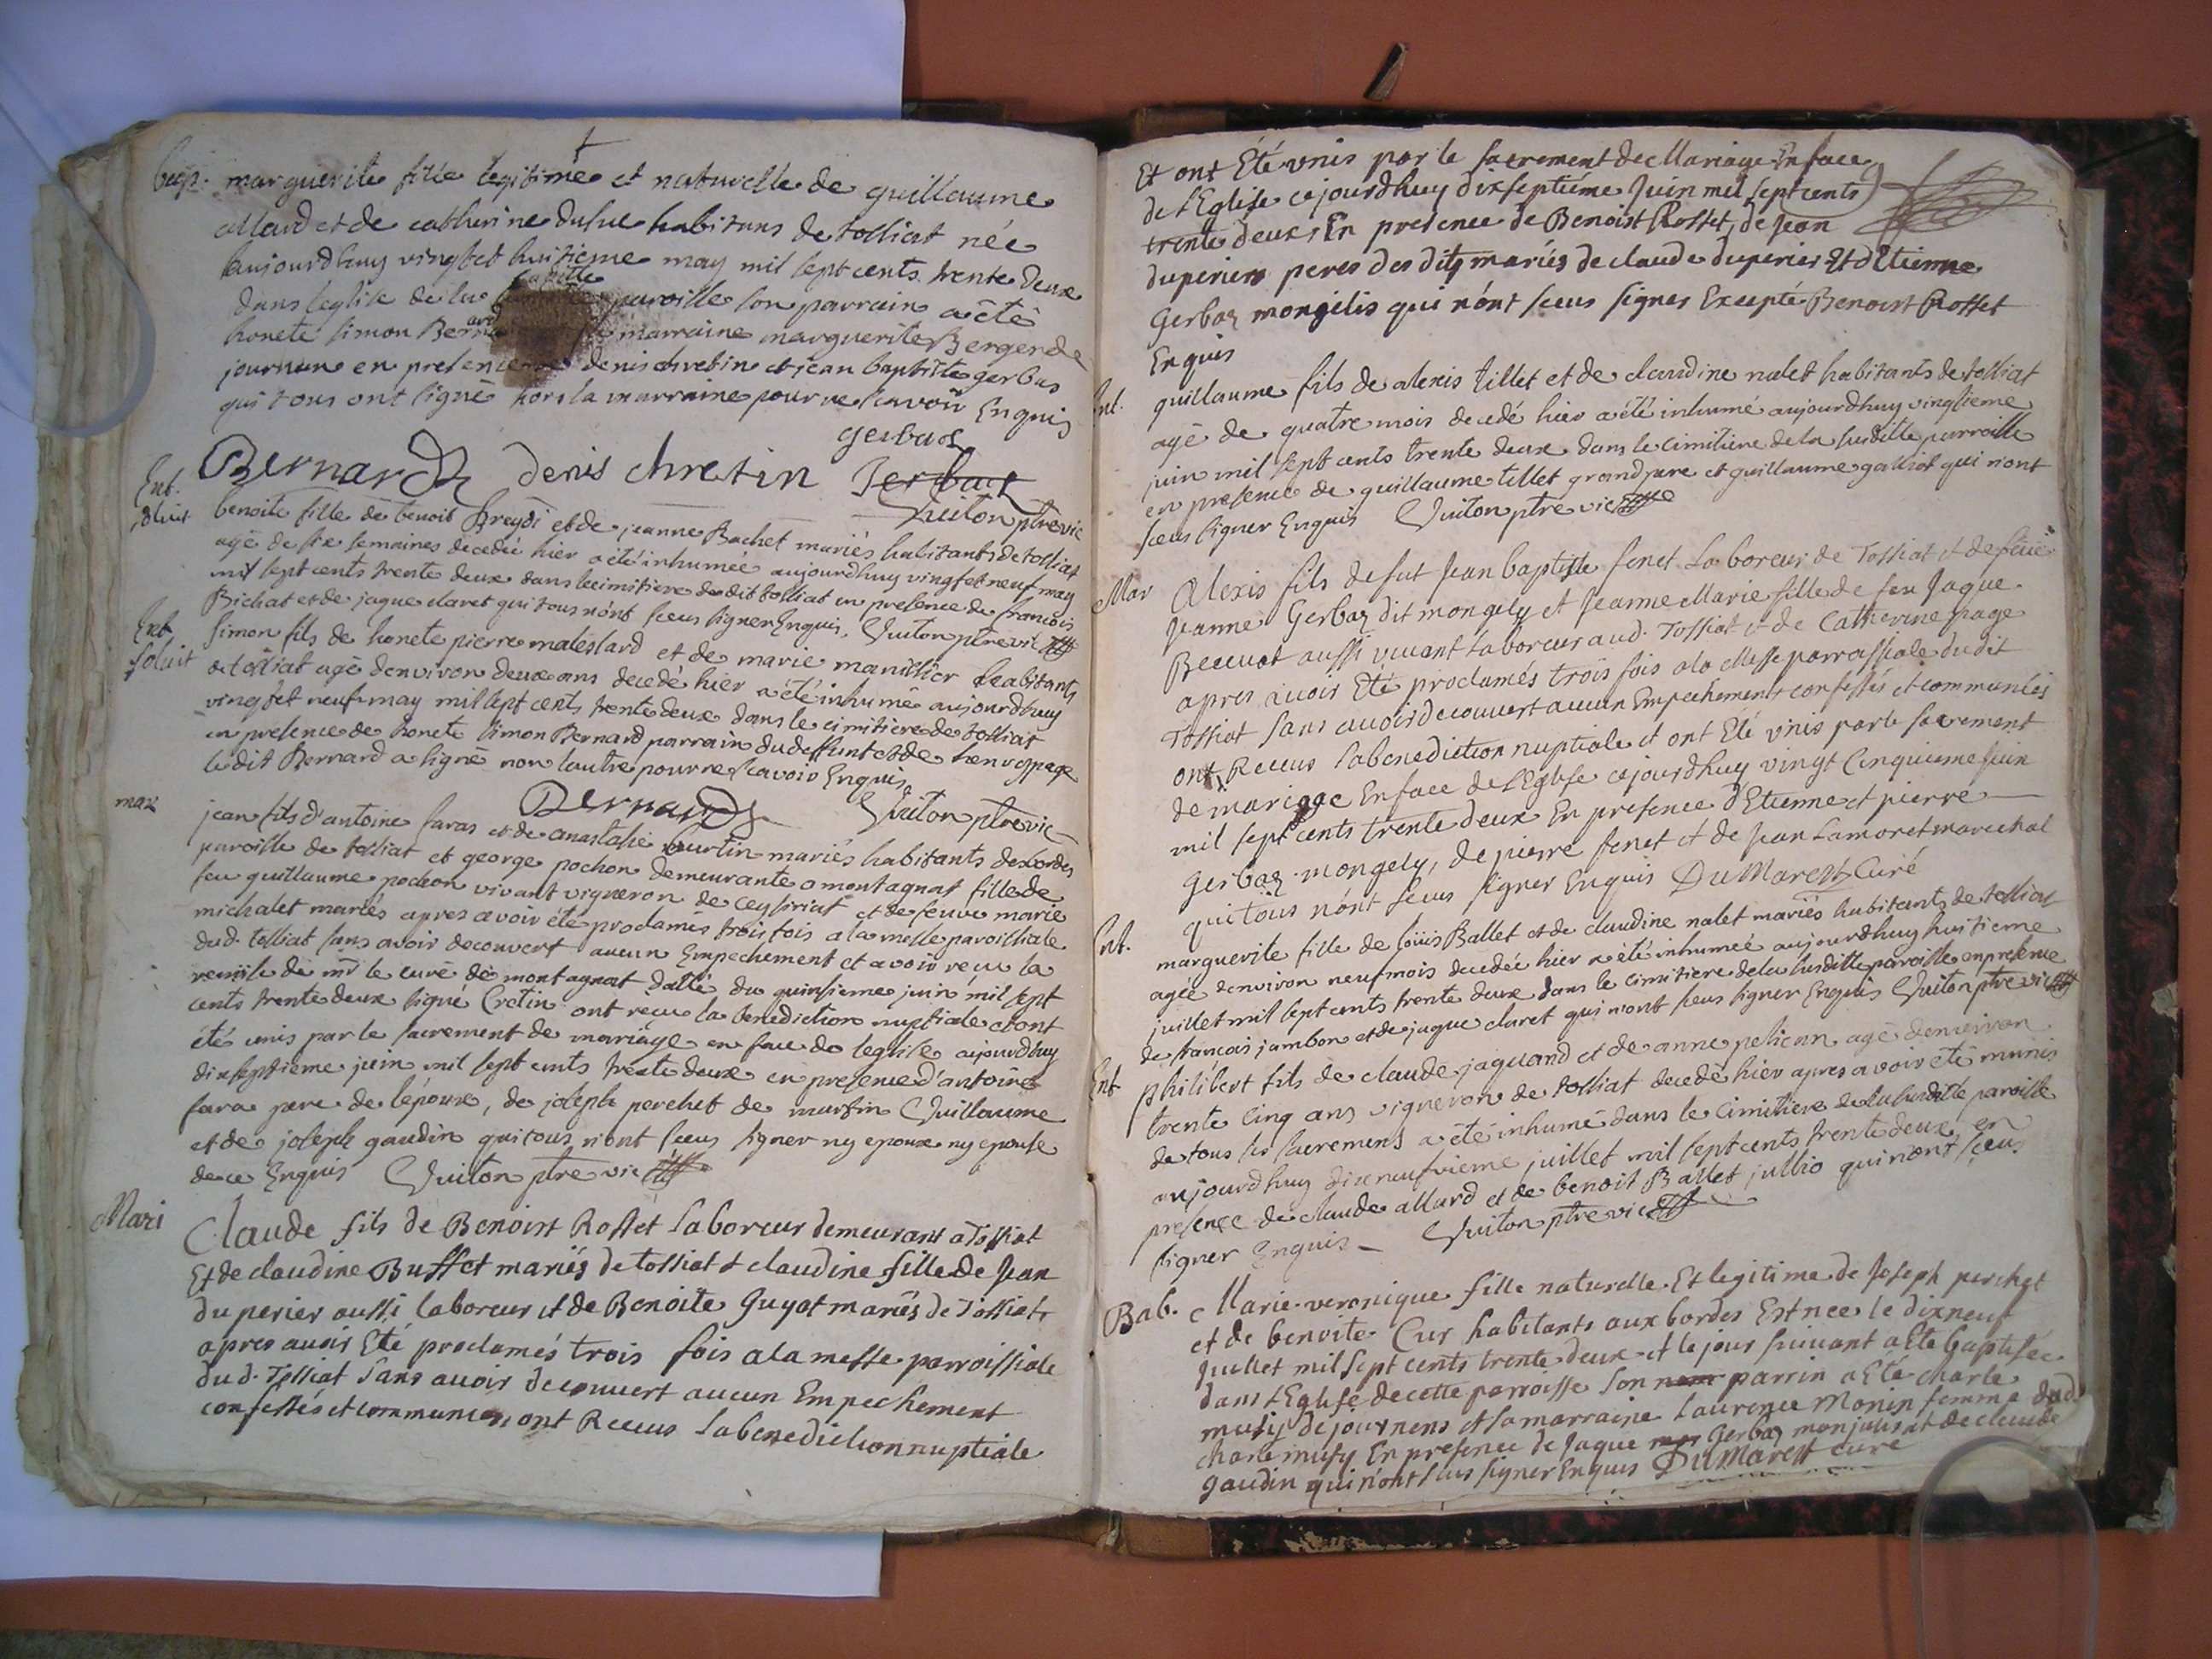 bap. marguerite fille legitime et naturelle de guillaume
allard et de catherine dufue habitans de tossiat née
aujourdhuy vingtet huitieme may mil sept cents trente deux
dans leglise de la paroisse son parrain a été
honete simon Bernard marraine marguerite Berger de
journan en presence denis chretin et jean baptiste gerbas
qui tous ont signé hors la marraine pour ne scavoir Enquis
gerbas
Bernard denis chretin
Vuiton ptre vic
Ent.
soluit
benoite fille de benoit Breydi et de jeanne Bachet mariés habitants de tossiat
agé de six semaines decedée hier a été inhumée aujourdhuy vingtet neuf may
mil sept cents trente deux dans le cimitiere du dit tossiat en presence de francois
Bichat et de jaque claret qui tous nónt sceus signer Enquis. Vuiton ptre vic
Ent
soluit
simon fils de honete pierre maleslard et de marie manillier habitants
de tossiat agé denviron deux ans decedé hier a été inhumé aujourdhuy
vingtet neuf may mil sept cents trente deux dans le cimitiere de tossiat
en presence de honete simon Bernard parrain du deffunt et de henry page
le dit Bernard a signé non lautre pour ne scavoir Enquis
Bernard Vuiton ptre vic
mar
jean fils d'antoine faras et de anastasie curtin mariés habitants des bordes
paroisse de tossiat et george pochon demeurante a montagnat fille de
feu guillaume pochon vivant vigneron de ceysiriat et de feuve marie
michalet mariés apres avoir été proclamés trois fois a la messe paroissiale
dud. tossiat sans avoir decouvert aucun Empechement et avoir reçu la
remise de mr le curé de montagnat datté du quinsieme juin mil sept
cents trente deux signé Cretin ont reçu la benediction nuptiale et ont
été unis par le sacrement de mariage en face de leglise aujourdhuy
dixseptieme juin mil sept cents trente deux en presence d'antoine
fara pere de lépoux, de joseph perchet de martin Vuillaume
et de joseph gaudin qui tous n'ont sceus signer ny epoux ny epouse
de ce Enquis Vuiton ptre vic
Mari
Claude fils de Benoist Rosset Laboreur demeurant a Tossiat
Et de claudine Buffet mariés de tossiat & claudine fille de Jean
du perier aussi laboreur et de Benoite Guyot mariés de Tossiat
apres avoir Eté proclamés trois fois a la messe parroissiale
dud. Tossiat sans avoir decouvert aucun Empechement
confessés et communiés, ont Receus la benediction nuptiale
Et ont Eté vnis par le sacrement de Mariage En face
de l'Eglise cejourdhuy dixseptiéme Juin mil sept cents
trente deux En presence de Benoist Rosset, de Jean
duperier peres des dits mariés de claude duperier Et d'Etienne
Gerbaz mongelis qui n'ónt sceus signer Excepté Benoist Rosset
Enquis
Ent.
guillaume fils de alexis tillet et de claudine nalet habitants de tossiat
agé de quatre mois decedé hier a été inhumé aujourdhuy vingtieme
juin mil sept cents trente deux dans le cimitiere de la susditte parroisse
en presence de guillaume tillet grand pere et guillaume galliot qui n'ont
sceus signer Enquis Vuiton ptre vic
Mar
Alexis fils de fut Jean baptiste fenet Laboreur de Tossiat et de feüe
Jeanne Gerbaz dit mongely et Jeanne Marie fille de feu Jaque
Beccuot aussi vivant laboreur aud. Tossiat & de Catherine page
apres avoir Eté proclamés trois fois a la Messe parrossiale dudit
Tossiat sans avoir decouvert aucun Empechement confessés et communiés
ont Receus la benediction nuptiale et ont Eté vnis par le sacrement
de mariage En face de l'Eglise cejourdhuy vingt Cinquieme juin
mil sept cents trente deux En presence d'Etienne et pierre
Gerbaz mongely, de pierre fenet et de Jean Lamoret marechal
qui tous nónt sceus signer Enquis DuMarest Curé
Ent.
marguerite fille de loüis Ballet et de claudine nalet mariés habitants de tossiat
agée denviron neuf mois decedée hier a été inhumée aujourdhuy huitieme
juillet mil sept cents trente deux dans le cimitiere de la susditte paroisse en presence
de francois jambon et de jaque claret qui n'ont sceus signer Enquis Vuiton ptre vic
Ent
philibert fils de claude jaquand et de anne pelican agé denviron
trente cinq ans vigneron de tossiat decedé hier apres avoir été munis
de tous les sacremens a été inhumé dans le cimitiere de la susditte paroisse
aujourdhuy dixneufvieme juillet mil sept cents trente deux en
presence de claude allard et de benoit Ballet jullio qui nont sceus
signer Enquis Vuiton ptre vic
Bab.
Marie veronique fille naturelle Et legitime de Joseph perchet
et de benoite Cur habitants aux bordes Est née le dixneuf
Juillet mil sept cents trente deux et le jour suivant a Eté baptisée
dans l'Eglise de cette parroisse son parrin a Eté charle
musy de journens et sa marraine Laurence Monin femme dud.
charle musy En presence de Jaque Gerbaz monjelis et de claude
gaudin qui n'ónt sceus signer Enquis DuMarest curé